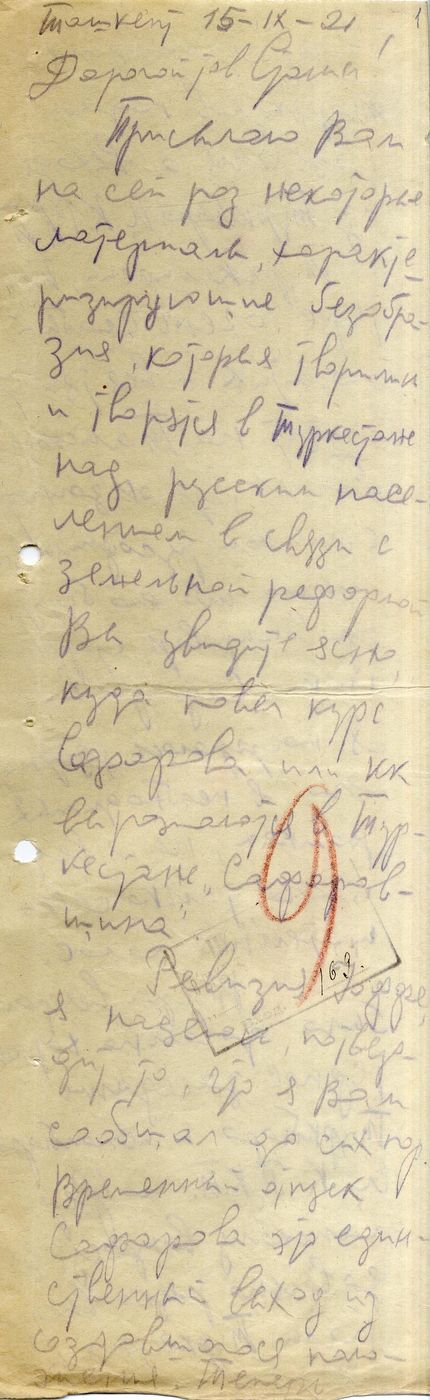 Ташкент 15-IX-21
1
Дорогой тов Сталин!
Присылаю Вам
на сей раз некоторые
материалы, характе-
ризирующие безобра-
зия, которыя творились
и творятся в Туркестане
над русским насе-
лением в связи с
земельной реформой
Вы увидите ясно,
куда повел курс
Сафарова, или как
выражаются в Тур-
кестане „Сафаров-
щина"
9
163.
Ревизия Иоффе,
я надеюсь, подтвер-
дит то, что я Вам
сообщал до сих пор
Временный отпуск
Сафарова это един-
ственный выход из
создавшегося поло-
жения. Теперь